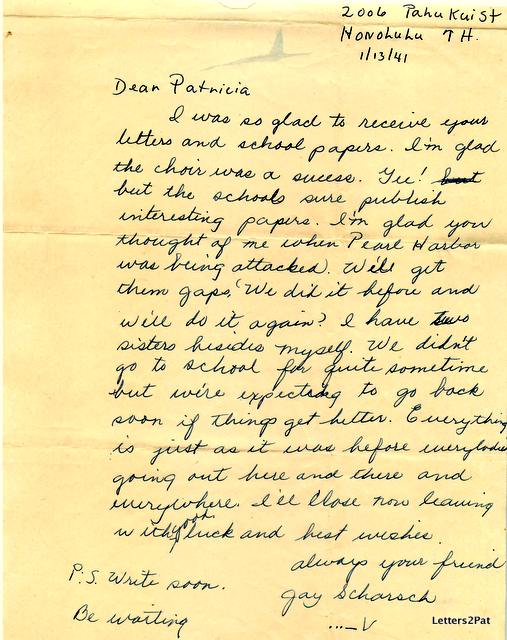 2006 Pahu Kui St
Honoluhu T.H.
1/13/41
Dear Patricia
I was so glad to receive your
letters and school papers. I'm glad
the choir was a sucess. Gee! but
but the schools sure publish
interesting papers. I'm glad you
thought of me when Pearl Harbor
was being attacked. We'll get
them gaps, "We did it before and
we'll do it again? I have two
sisters besides myself. We didn't
go to school for quite sometime
but we're expecting to go back
soon if things get better. Everything
is just as it was before everybodie
going out here and there and
everywhere. I'll close now leaving
with good luck and best wishes.
always your friend
Gay Scharsch
...—V
P.S. Write soon.
Be waiting
Letters2Pat